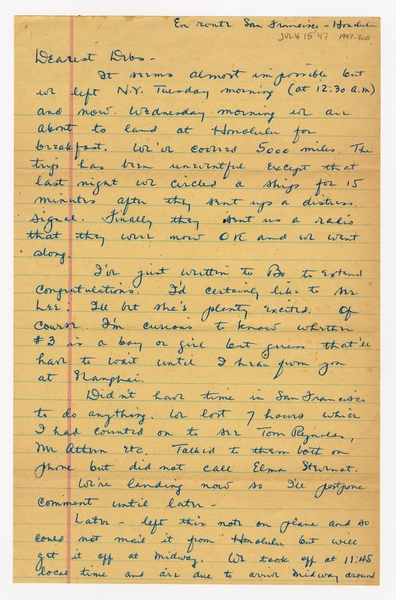 En route San Francisco - Honolulu
JULY 15 '47 1947-
Dearest Debs -
It seems almost impossible but
we left N.Y. Tuesday morning (at 12:30 a.m)
and now Wednesday morning we are
about to land at Honolulu for
breakfast. We've covered 5000 miles. The
trip has been uneventful except that
last night we circled a ships for 15
minutes after they sent up a distress
signal. Finally they sent us a radio
that they were now OK and we went
along.
I've just written to Bo to extend
congratulations. I'd certainly like to see
her. I'll bet she's plenty excited. Of
course I'm curious to know whether
#3 is a boy or girl but guess that'll
have to wait until I hear from you
at Shanghai.
Didn't have time in San Francisco
to do anything. We lost 7 hours which
I had counted on to see Tom Reynolds,
Mr etc. Talked to them both on
phone but did not call Elma
We're landing now so I'll postpone
comment until later -
Later - left this note on plane and so
could not mail it from Honolulu but will
get it off at Midway. We took off at 11:45
local time and are due to arrive Midway around